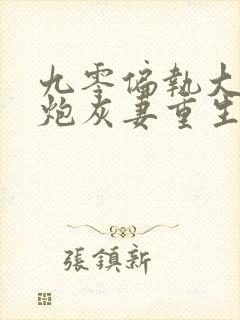 九零偏執大
炮灰妻重生
張鎮新